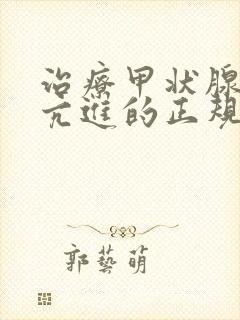 治療甲状腺
亢進的正規
郭藝萌